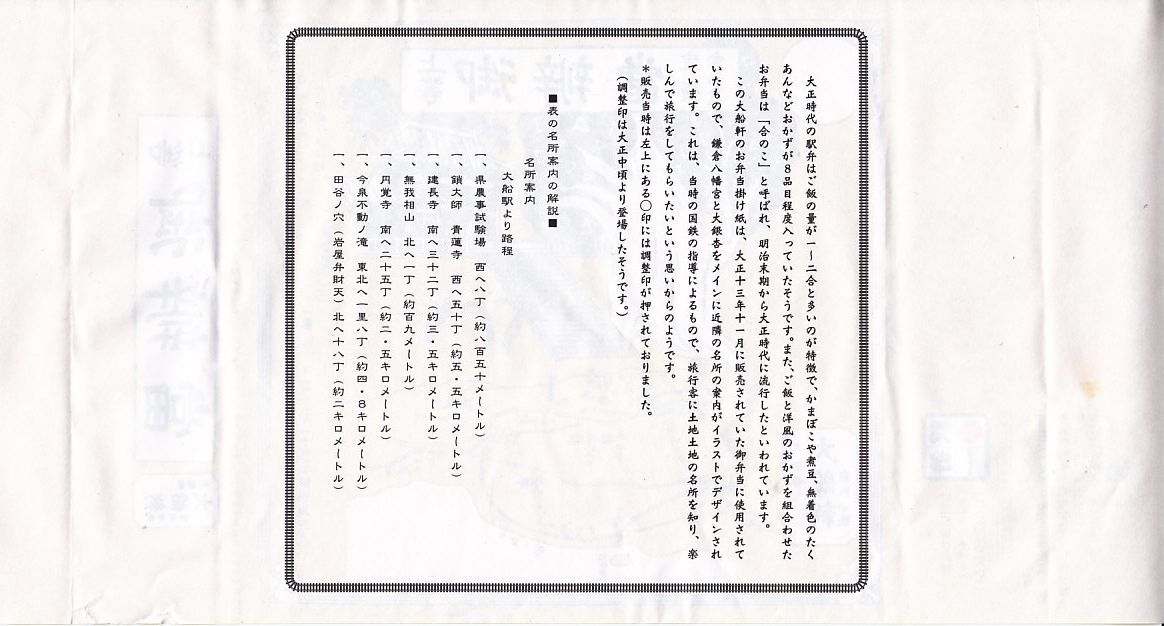 大正時代の駅弁はご飯の量が一～二合と多いのが特徴で、かまぼこや煮豆、無着色のたく
あんなどおかずが８品目程度入っていたそうです。また、ご飯と洋風のおかずを組合わせた
お弁当は「合のこ」と呼ばれ、明治末期から大正時代に流行したといわれています。
この大船軒のお弁当掛け紙は、大正十三年十一月に販売されていた御弁当に使用されて
いたもので、鎌倉八幡宮と大銀杏をメインに近隣の名所の案内がイラストでデザインされ
ています。これは、当時の国鉄の指導によるもので、旅行客に土地土地の名所を知り、楽
しんで旅行をしてもらいたいという思いからのようです。
＊販売当時は左上にある◯印には調整印が押されておりました。
（調整印は大正中頃より登場したそうです。）
■表の名所案内の解説■
名所案内
大船駅より路程
一、県農事試験場 西へ八丁（約八百五十メートル）
一、鎖大師 青蓮寺 西へ五十丁（約五・五キロメートル）
一、建長寺 南へ三十二丁（約三・五キロメートル）
一、無我相山 北へ一丁（約百九メートル）
一、円覚寺 南へ二十五丁（約二・五キロメートル）
一、今泉不動ノ滝 東北へ一里八丁（約四・８キロメートル）
一、田谷ノ穴（岩屋弁財天）北へ十八丁（約二キロメートル）